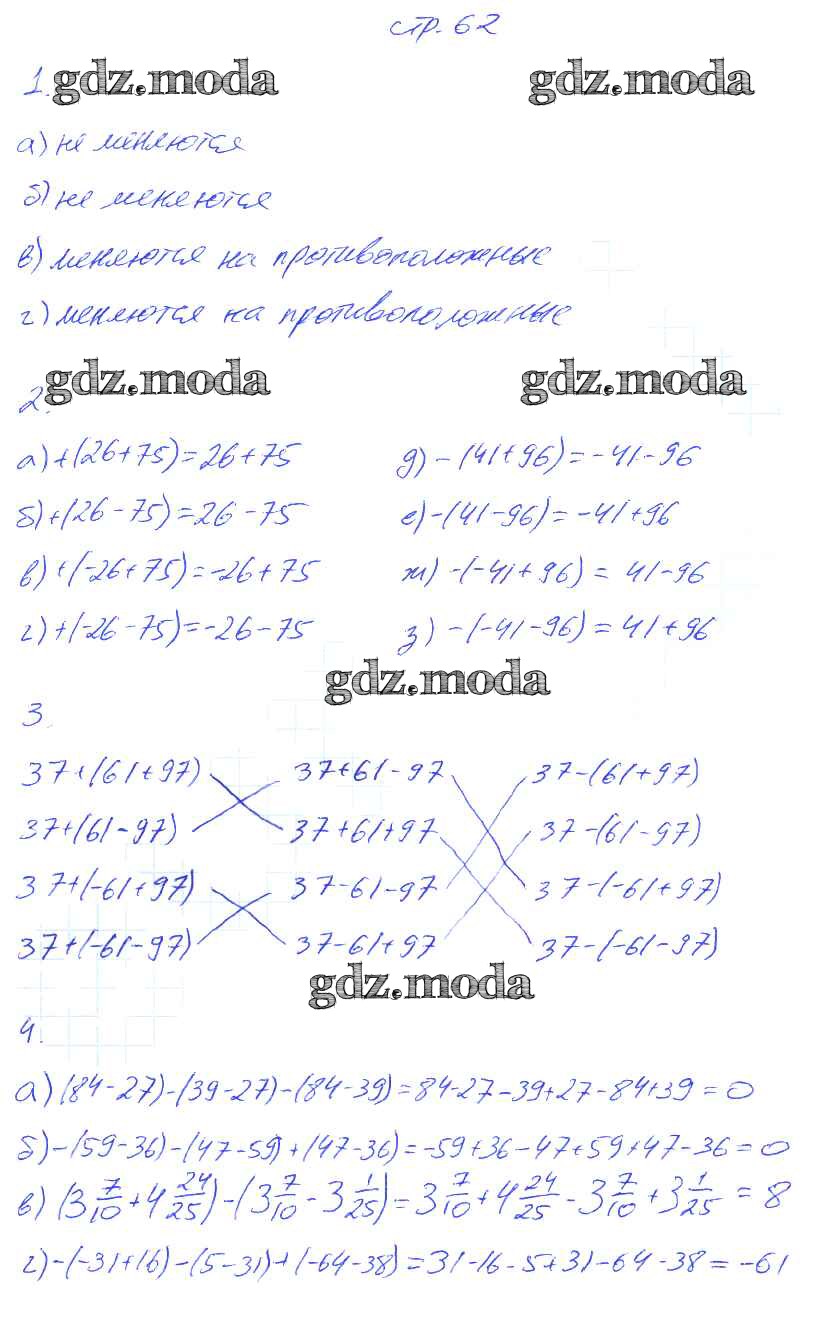 стр. 62
1. gdz.moda gdz.moda
а) не меняются
б) не меняются
в) меняются на противоположные
г) меняются на противоположные
gdz.moda gdz.moda
2.
а) +(26+75)=26+75 д) -(41+96)=-41-96
б) +(26-75)=26-75 е) -(41-96)=-41+96
в) +(-26+75)=-26+75 ж) -(-41+96)=41-96
г) +(-26-75)=-26-75 з) -(-41-96)=41+96
gdz.moda
3.
37+(61+97) 37+61-97 37-(61+97)
37+(61-97) 37+61+97 37-(61-97)
37+(-61+97) 37-61-97 37-(-61+97)
37+(-61-97) 37-61+97 37-(-61-97)
gdz.moda
4.
а) (84-27)-(39-27)-(84-39)=84-27-39+27-84+39=0
б) -(59-36)-(47-59)+(47-36)=-59+36-47+59+47-36=0
в) (3 7/10+4 24/25)-(3 7/10-3 1/25)=3 7/10+4 24/25-3 7/10+3 1/25=8
г) -(-31+16)-(5-31)+(-64-38)=31-16-5+31-64-38=-61